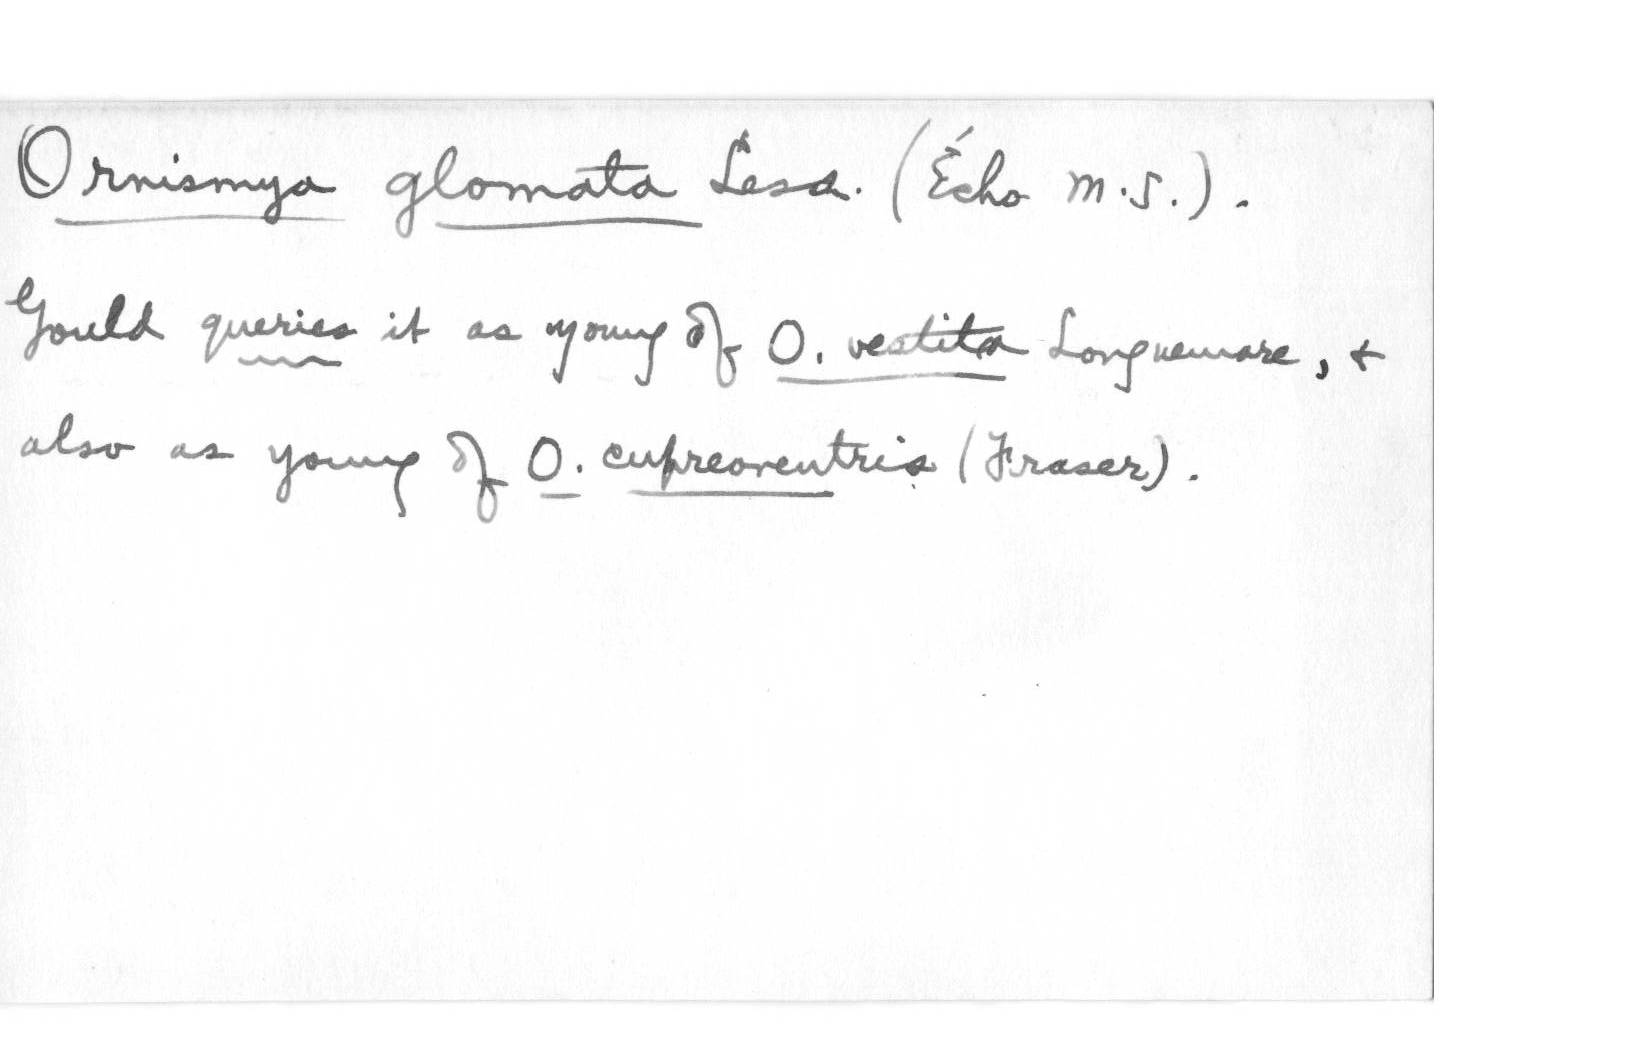 Ornismya glomata Less. (Écho M.S.).
Gould queries it as young of O. vestita Longuemare, &
also as young of O. cupreoventris (Fraser).